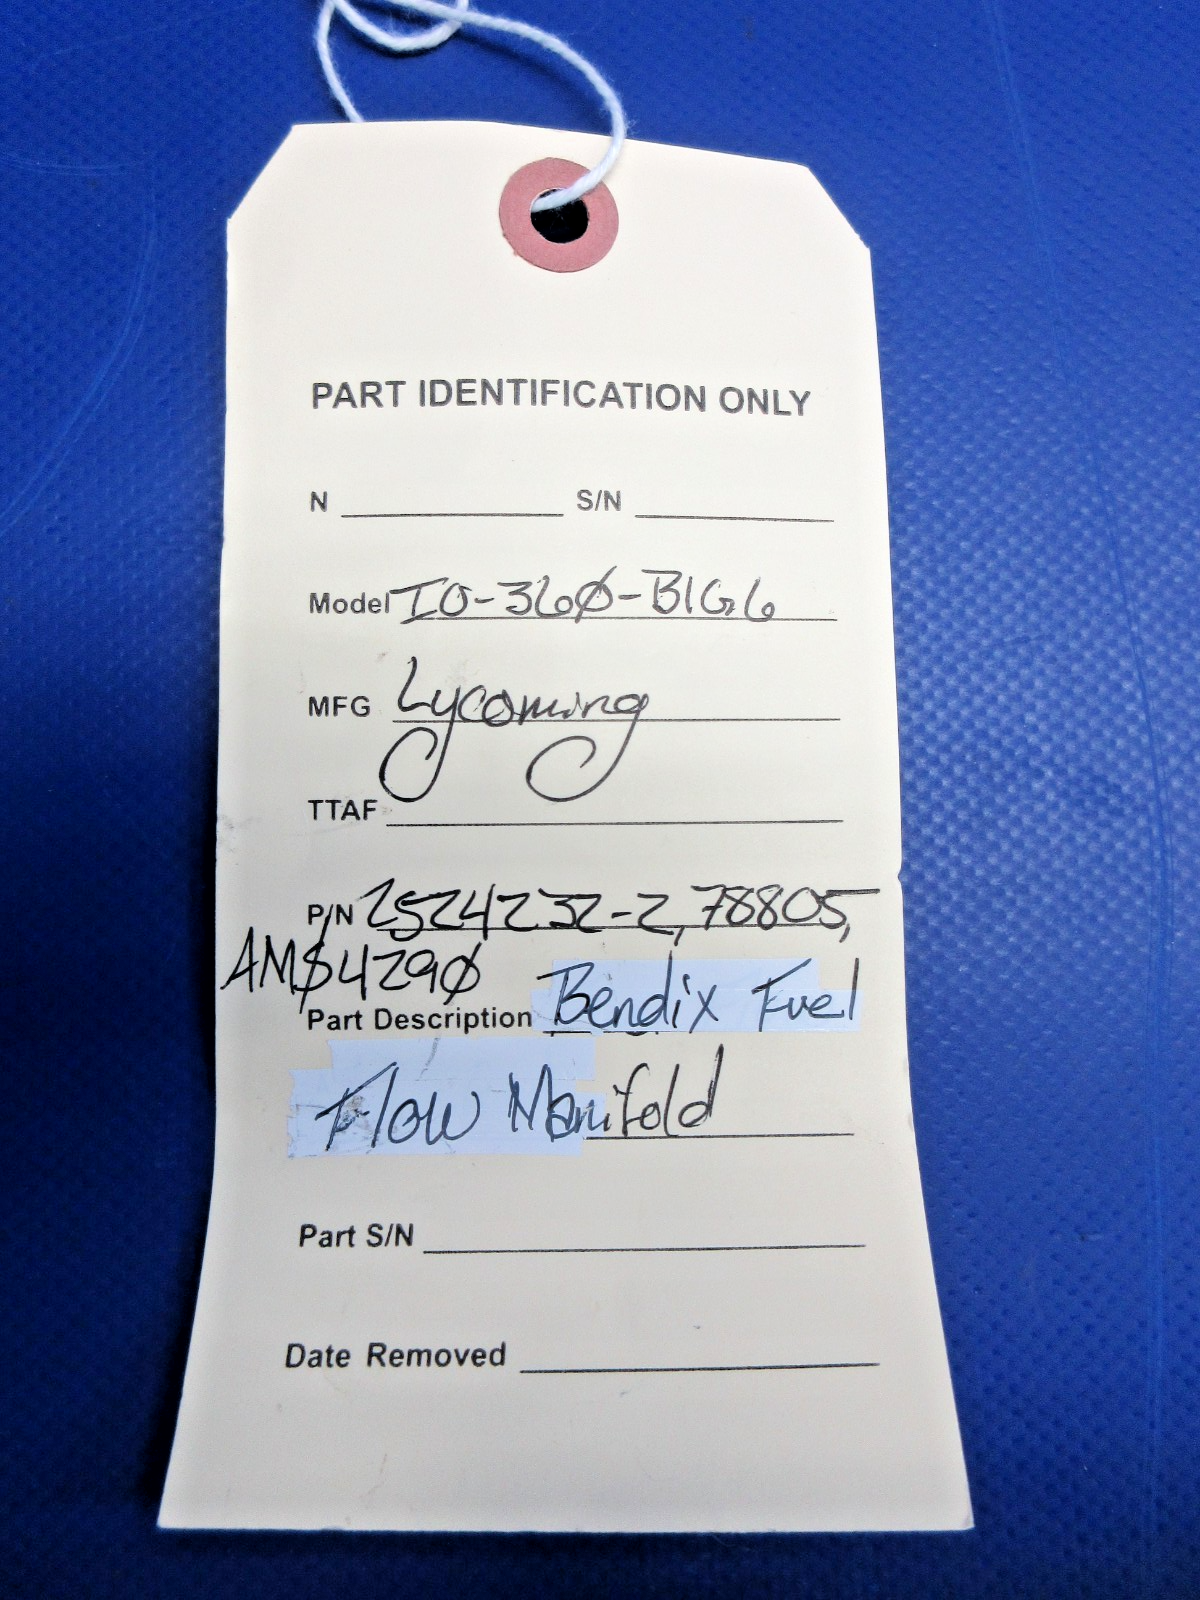 PART IDENTIFICATION ONLY
N S/N
Model IO-360-B1G6
MFG Lycoming
TTAF
P/N 2524232-2, 78805,
AMS4290
Part Description Bendix Fuel
Flow Manifold
Part S/N
Date Removed